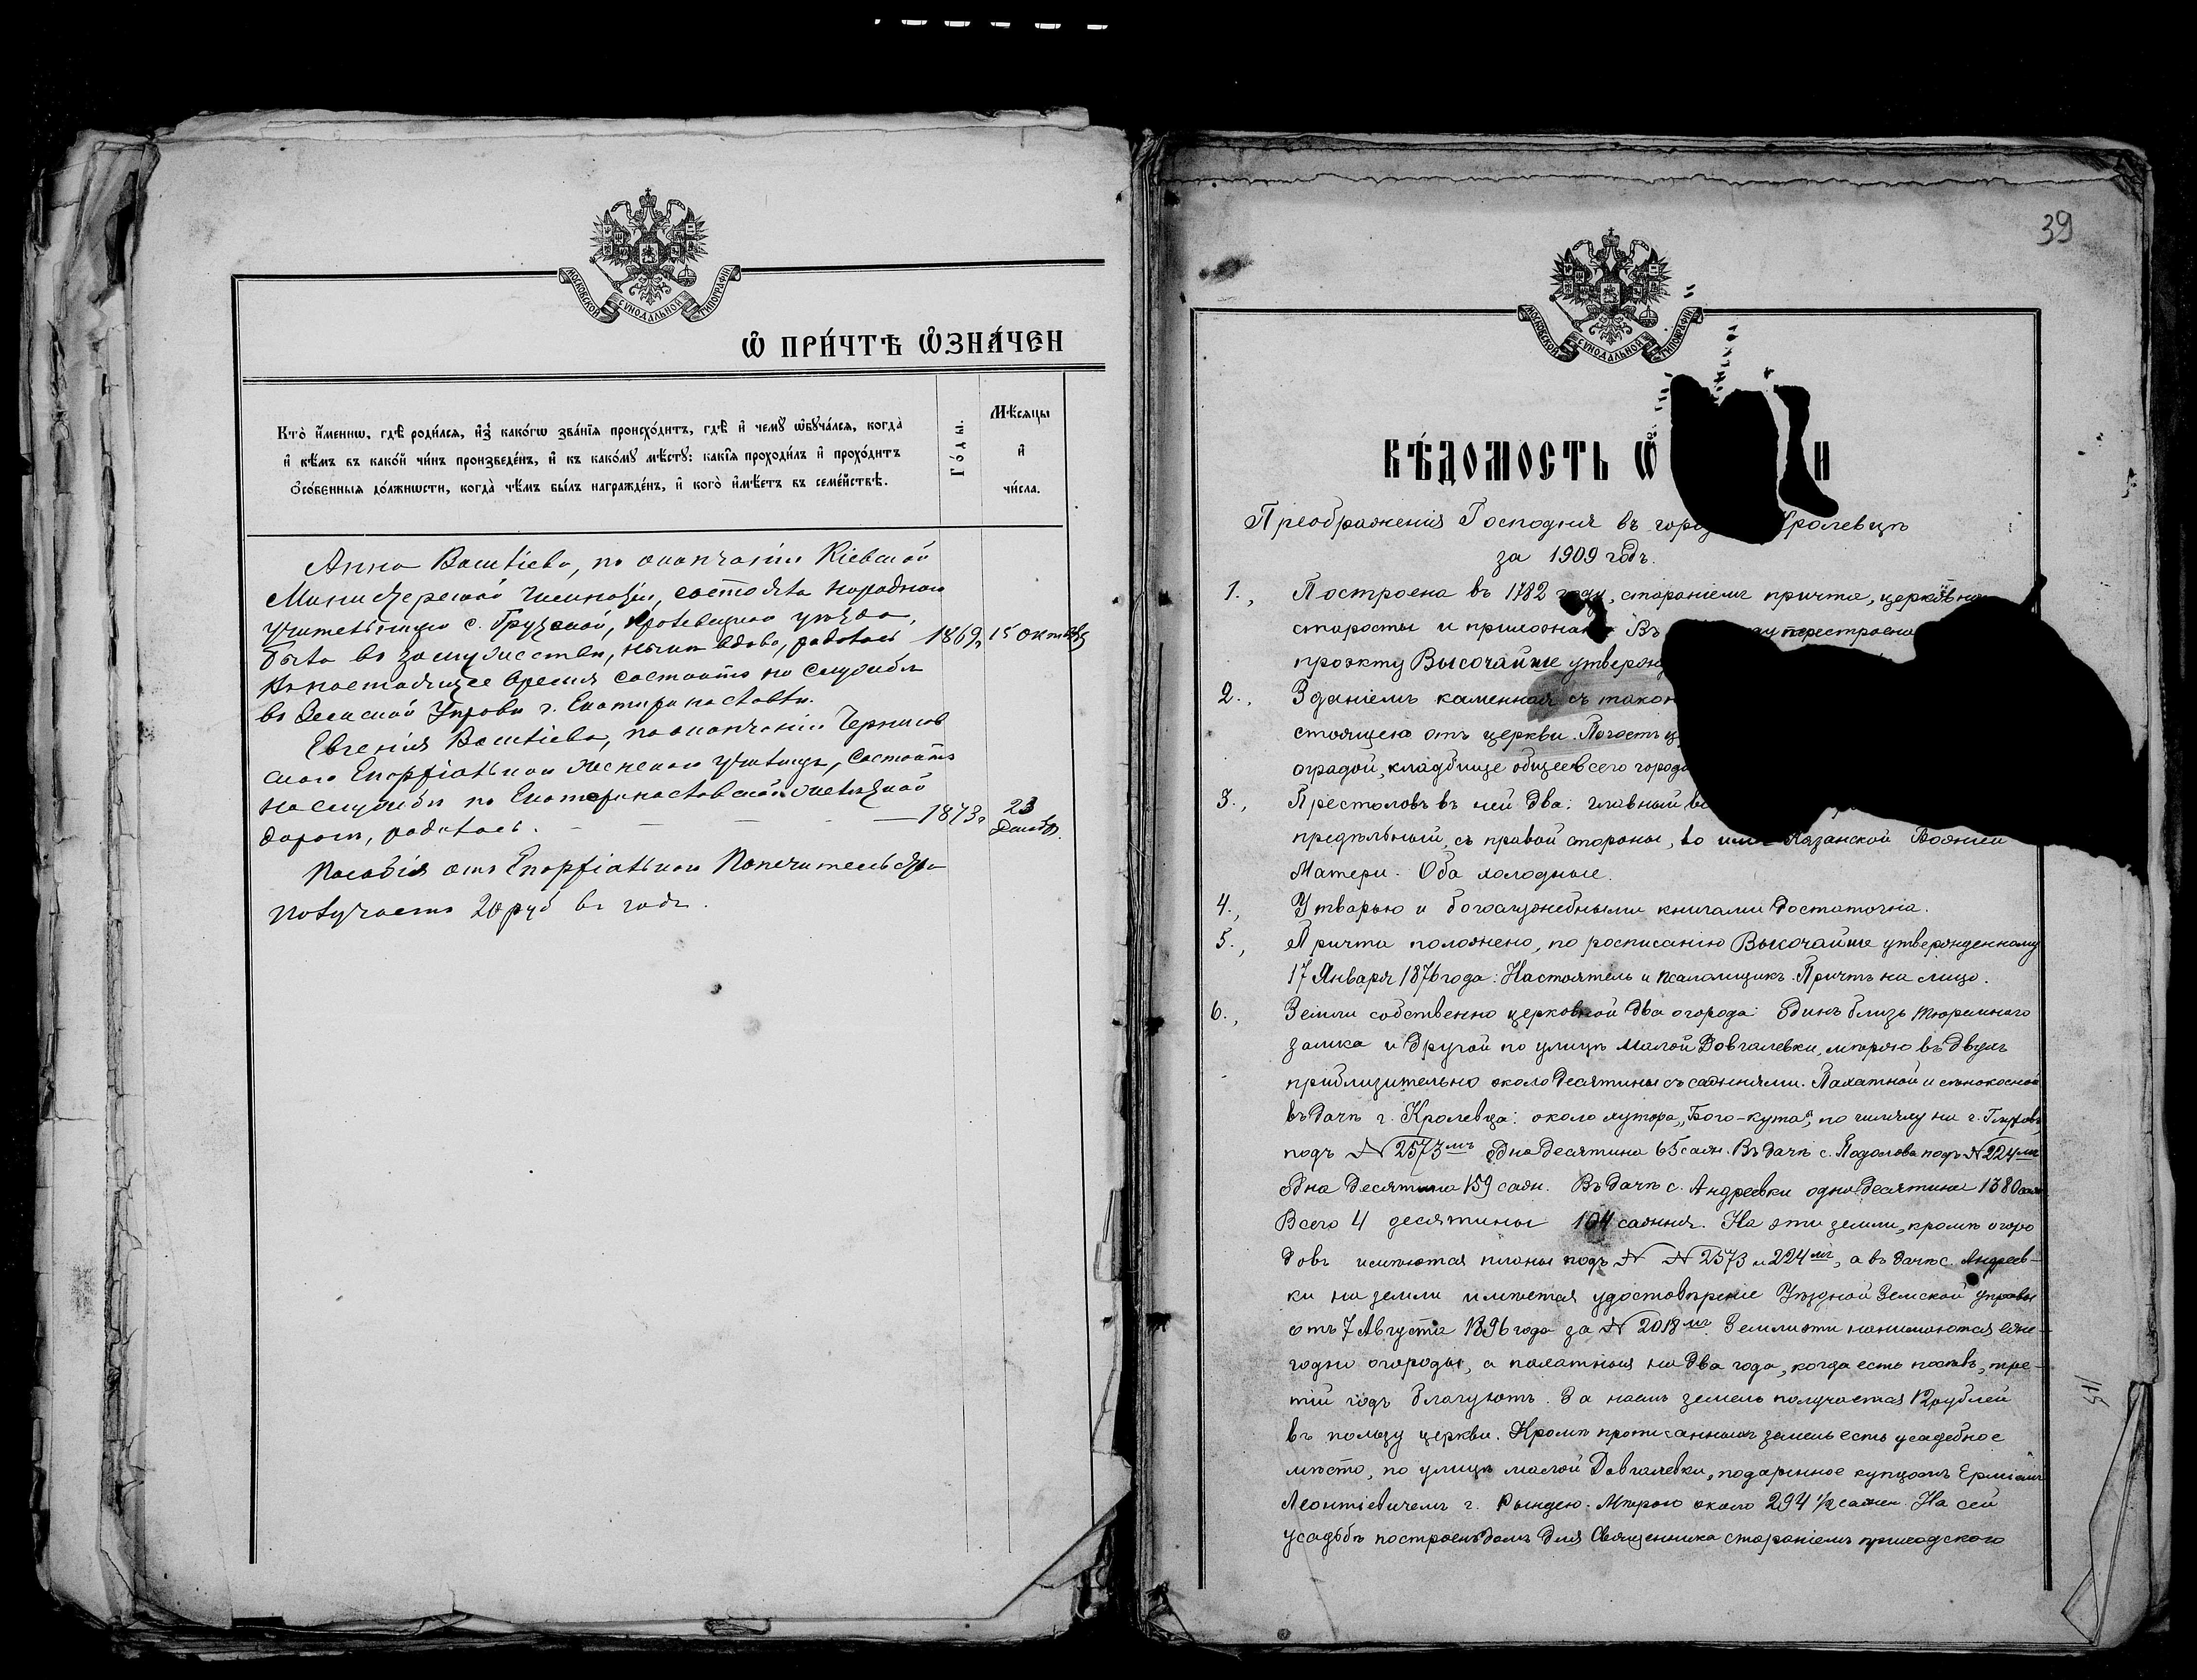 МОСКОВСКОЙ СѴНОДАЛЬНОЙ ТИПОГРАФІИ
Ѡ ПРИ́ЧТѢ ѠЗНА́ЧЕН
Кто̀ и҆́меннѡ, гдѣ̀ роди́лся, и҆з̾ како́гѡ зва́нїя происхо́дитъ, гдѣ̀ и҆ чемꙋ̀ ѡ҆бꙋча́лся, когда̀
и҆ кѣ́мъ въ како́й чи́нъ произведе́нъ, и҆ къ како́мꙋ мѣ́стꙋ: какі̑я проходи́лъ и҆ прохо́дитъ
ѻ҆со́бенныя до́лжности, когда̀ чѣ́мъ бы́лъ награжде́нъ, и҆ кого̀ и҆мѣ́етъ въ семе́йствѣ.
Го́ды.
Мѣ́сяцы
и҆
чи́сла.
Анна Васильева, по окончаніи Кіевской
Министерской Гимназіи, состояла народною
учительницею с. Грузской, Кролевецкого уѣзда,
была въ замужествѣ, нынѣ вдова, родилась 1869 г. 15 Октября
Въ настоящее время состоитъ на службѣ
въ Земской Управѣ г. Екатеринославля.
Евгенія Васильева, по окончаніи Чернигов
скаго Епархіальнаго женскаго училища, состоитъ
на службѣ по Екатеринославской желѣзной
дорогѣ, родилась. — — — — 1873 г. 23 Декабр.
Пособія отъ Епархіальнаго Попечительства
получаетъ 20 руб въ годъ.
39
МОСКОВСКОЙ СѴНОДАЛЬНОЙ ТИПОГРАФІИ
ВѢ́ДОМОСТЬ Ѡ И
Преображенія Господня въ горо Кролевцѣ
за 1909 годъ.
1., Построена въ 1782 году, стараніемъ причта, церковна
старосты и прихожанъ Въ перестроена
проэкту Высочайше утвержд
2., Зданіемъ каменная съ такою
стоящею отъ церкви. Погостъ ц
оградой, кладбище общее всего города
3., Престоловъ въ ней два: главный во
предѣльный, съ правой стороны, во имя Казанской Божіей
Матери. Оба холодные.
4., Утварью и богослужебными книгами достаточна.
5., Причта положено, по росписанію Высочайше утвержденному
17 Января 1876 года: Настоятель и псаломщикъ. Причтъ на лицо.
6., Земли собственно церковной два огорода: Одинъ близь тюремнаго
замка и другой по улицѣ Малой Довгалевки, мѣрою въ двухъ
приблизительно около десятины съ саженями. Пахатной и сѣнокосной
въ дачѣ г. Кролевца: около хутора „Бого-кута", по шляху на г. Глуховъ,
подъ № 2573мъ одна десятина 65 саж. Въ дачѣ с. Подолова подъ № 224мъ
одна десятина 159 саж. Въ дачѣ с. Андреевки одна десятина 1380 саж
Всего 4 десятины 104 сажня. На эти земли, кромѣ огоро
довъ имѣются планы подъ № № 2573 и 224мъ, а въ дачѣ с. Андреев-
ки на земли имѣется удостовѣреніе Уѣздной Земской управы
отъ 7 Августа 1896 года за № 2018мъ. Земли эти нанимаются еже-
годно огороды, а пахатныя на два года, когда есть посѣвъ, тре-
тій годъ За наемъ земель получается 12 рублей
въ пользу церкви. Кромѣ прописанныхъ земель есть усадебное
мѣсто, по улицѣ малой Довгалевки, подаренное купцомъ Ерміемъ
Леонтіевичемъ г. Рындею. Мѣрою около 294 1/2 сажен. На сей
усадьбѣ построенъ домъ для Священника стараніемъ приходского